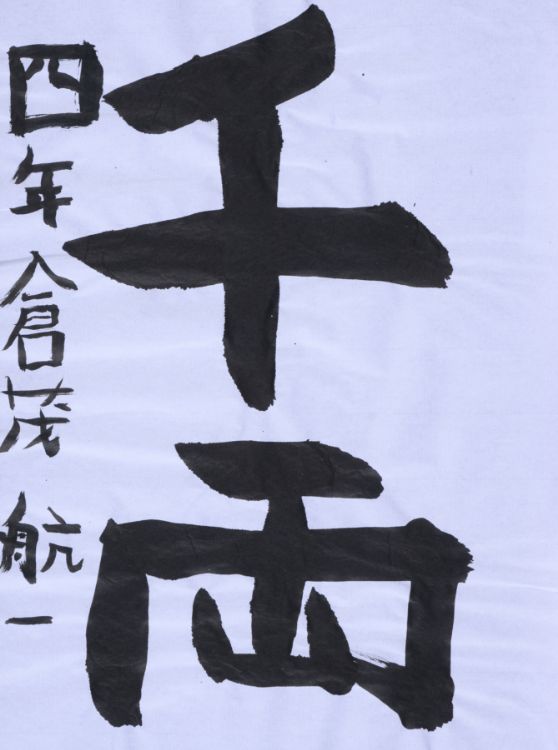 千両
四年 倉茂 航一